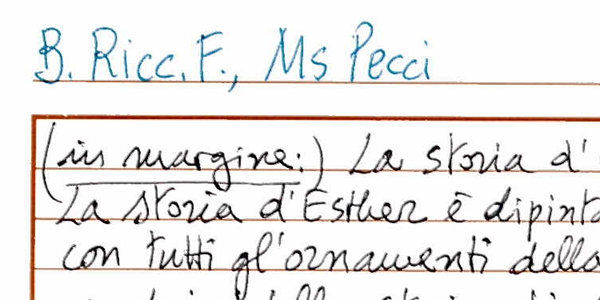 B. Ricc. F., Ms Pecci
(in margine:) La storia d'
La storia d'Esther è dipint
con tutti gl'ornamenti della